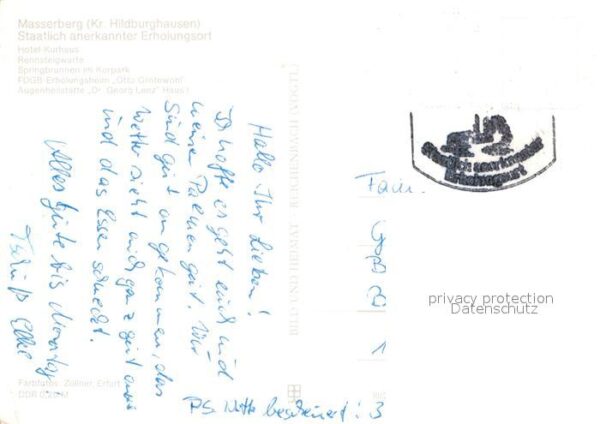 Masserberg (Kr. Hildburghausen)
Staatlich anerkannter Erholungsort
Hotel Kurhaus
Rennsteigwarte
Springbrunnen im Kurpark
FDGB-Erholungsheim „Otto Grotewohl"
Augenheilstätte „Dr. Georg Lenz" Haus I
Hallo Ihr Lieben!
Ich hoffe es geht euch und
meine Palmen gut. Wir
sind gut angekommen, das
Wetter sieht auch ganz gut aus
und das Essen schmeckt.
Alles Gute bis Montag
Tschüß Elke
PS. Wetter bescheinert: 3
BILD UND HEIMAT REICHENBACH (VOGTL)
Farbfotos: Zöllner, Erfurt
DDR
Staatlich anerkannter
Erholungsort
Fam.
1
privacy protection
Datenschutz